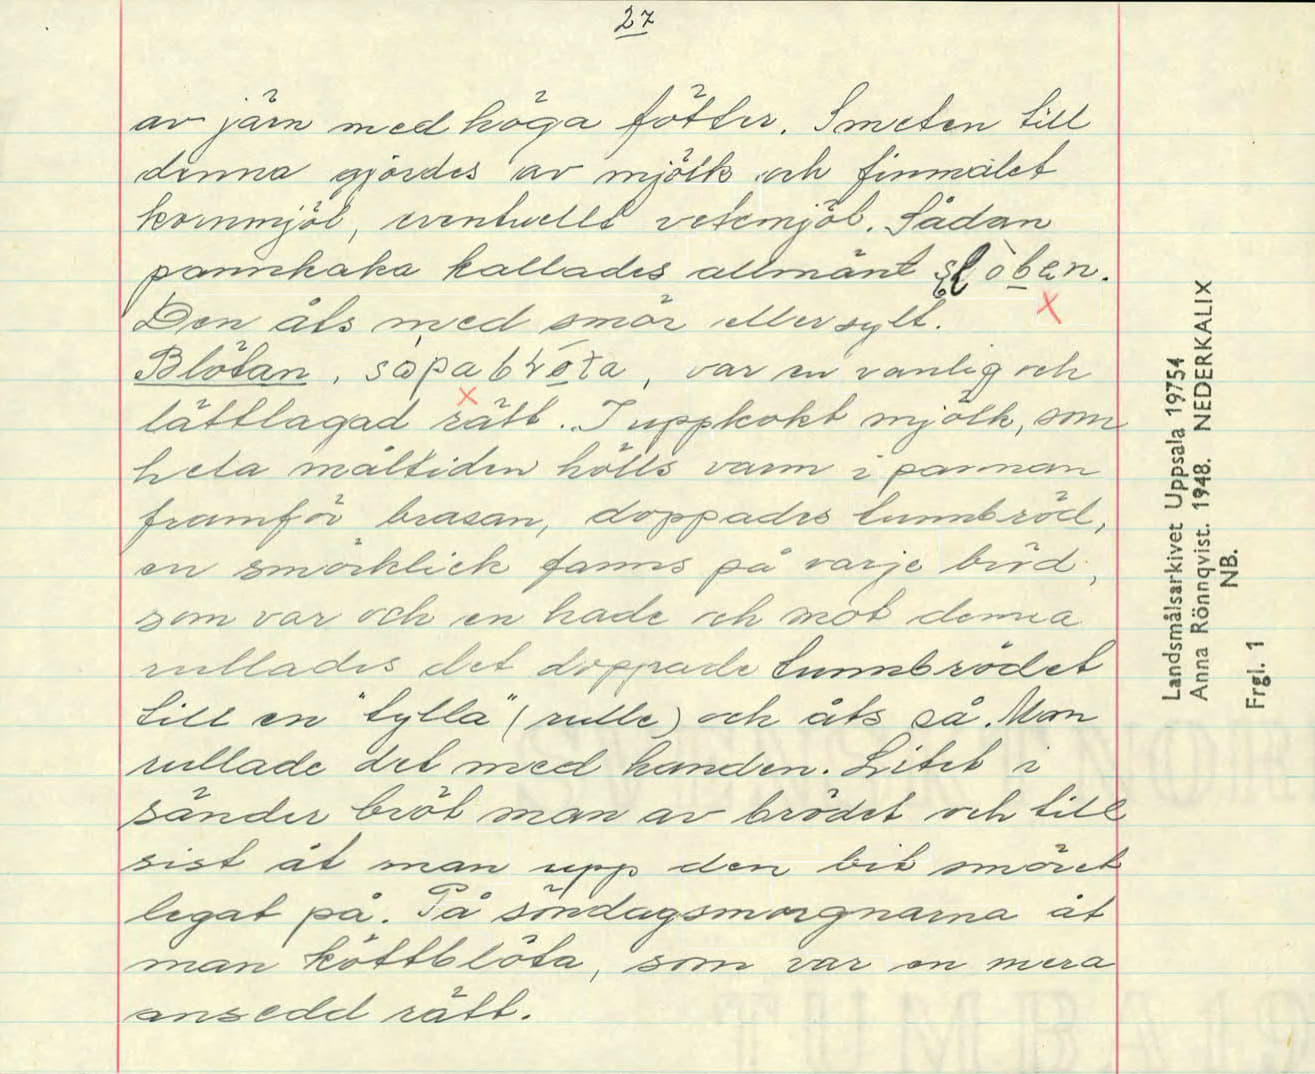 27
av järn med höga fötter. Smeten till
denna gjordes av mjölk och finmalet
kornmjöl, eventuellt vetemjöl. Sådan
pannkaka kallades allmänt
Den åts med smör eller sylt.
Blötan, sòpabłȯta, var en vanlig och
lättlagad rätt. I uppkokt mjölk, som
hela måltiden hölls varm i pannan
framför brasan, doppades tunnbröd,
en smörklick fanns på varje bröd,
som var och en hade och mot denna
rullades det doppade tunnbrödet
till en "tylla" (rulle) och åts så. Man
rullade det med handen. Litet i
sänder bröt man av brödet och till
sist åt man upp den bit smöret
legat på. På söndagsmorgnarna åt
man köttblöta, som var en mera
ansedd rätt.
Landsmålsarkivet Uppsala 19754
Anna Rönnqvist. 1948. NEDERKALIX
NB.
Frgl. 1